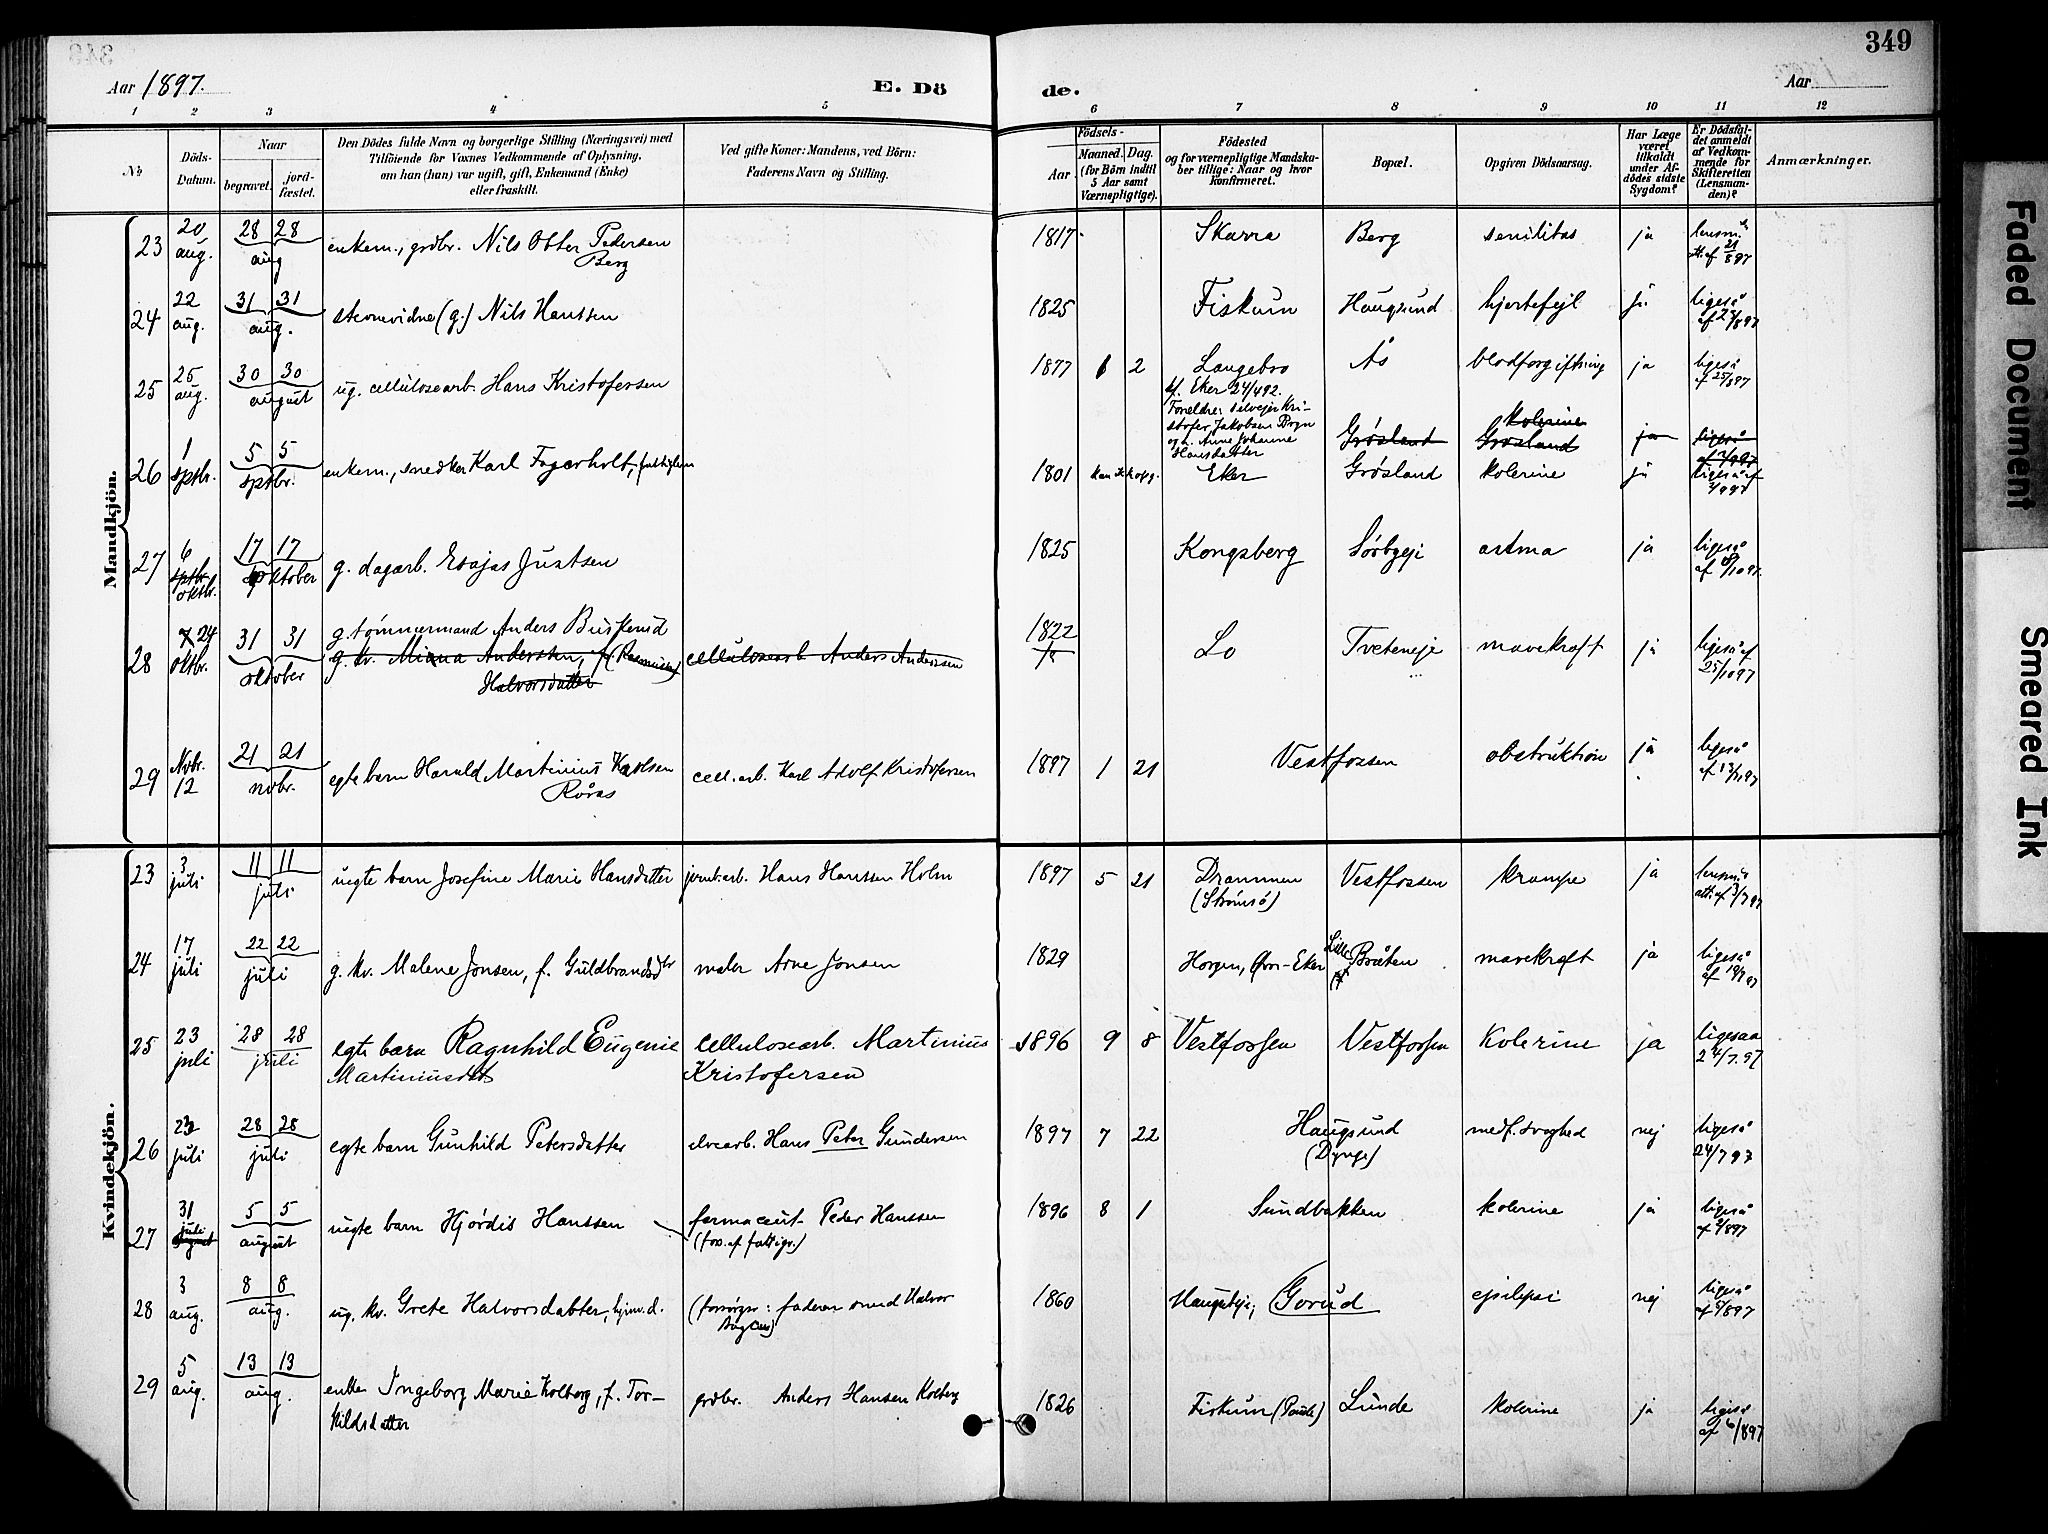 349
Aar 1897.
E. Dö
de.
Aar
1 2 3 4 5 6 7 8 9 10 11 12
№
Döds-Datum.
Naar
begravet.
jord-fæstet.
Den Dödes fulde Navn og borgerlige Stilling (Næringsvei) med
Tilföiende for Voxnes Vedkommende af Oplysning,
om han (hun) var ugift, gift, Enkemand (Enke)
eller fraskilt.
Ved gifte Koner: Mandens, ved Börn:
Faderens Navn og Stilling.
Födsels-
Aar.
Maaned. Dag.
(for Börn indtil
5 Aar samt
Værnepligtige).
Födested
og for værnepligtige Mandska-
ber tillige: Naar og hvor
konfirmeret.
Bopæl.
Opgiven Dödsaarsag.
Har Læge
været
tilkaldt
under Af-
dödes sidste
Sygdom?
Er Dödsfal-
det anmeldt
af Vedkom-
mende for
Skifteretten
(Lensman-
den)?
Anmærkninger.
Mandkjön.
23 20 aug. 28 28 aug enkem., grdbr. Nils Otter Pedersen Berg 1817 Skarra Berg senilitas ja lensm. att. af 21/8 97
24 22 aug. 31 31 aug. stevnevidne (g.) Nils Hanssen 1825 Fiskum Haugsund hjertefejl ja ligeså af 23/897
25 25 aug. 30 30 august ug. cellulosearb. Hans Kristofersen 1877 1 2 Langebro Ås blodforgiftning ja ligeså af 25/897
kf. Eker 24/492.
Foreldre: selvejer Kri-
stofer Jakobsen Bryn
og h. Anne Johanne
Hansdatter
Grøsland kolerine Grøsland ja ligeså
26 1 sptbr. 5 5 sptbr. enkem., snedker Karl Fagerholt, fattiglem 1801 Eker Grøsland kolerine ja ligeså af 2/997
27 6 sptbr. oktbr. 17 17 oktober g. dagarb. Esajas Justsen 1825 Kongsberg Sørbyeje astma ja ligeså af 8/1097.
28 7 24 oktbr. 31 31 oktober g. tømmermand Anders Buskerud 1822 Lo Tveteneje mavekræft ja ligeså af 25/1097
g. kv. Minna Anderssen, f. (Rasmussen) Halvorsdatter cellulosearb. Anders Anderssen
29 Nvbr. 12 21 21 nvbr. egte barn Harald Martinius Karlsen Røras cell.arb. Karl Adolf Kristofersen 1897 1 21 Vestfossen obstruktion ja ligeså af 13/1197
Kvindekjön.
23 3 juli 11 11 juli uegte barn Josefine Marie Hansdatter jernb.arb. Hans Hanssen Holm 1897 5 21 Drammen (Strømsø) Vestfossen krampe ja lensm.s att. af 3/797
24 17 juli 22 22 juli g. kv. Malene Jonsen, f. Guldbrandsdtr maler Arne Jonsen 1829 Horgen, Øvr-Eker Lille Bråten mavekræft ja ligeså af 19/797
25 23 juli 28 28 juli egte barn Ragnhild Eugenie Martiniusdtt cellulosearb. Martinius Kristofersen 1896 9 8 Vestfossen Vestfossen Kolerine ja ligesaa 24/7.97
26 23 juli 28 28 juli egte barn Gunhild Petersdatter elvearb. Hans Peter Gundersen 1897 7 22 Haugsund (Dynge) medf. svaghed nej ligeså 24/797
27 31 juli august 5 5 august uegte barn Hjørdis Hanssen farmaceut Peder Hanssen (fors. af fattigv.) 1896 8 1 Sundbakken kolerine ja ligeså af 2/897
28 3 aug. 8 8 aug. ug. kv. Grete Halvorsdatter, hjmv. d. (forsørger: faderen smed Halvor 1860 Haugseje, Gorud epilepsi nej ligeså af 5/897
29 5 aug. 13 13 aug. enke Ingeborg Marie Kolberg, f. Tor-kildsdatter grdbr. Anders Hansen Kolberg 1826 Fiskum Lunde kolerine ja ligeså af 6/897
Faded Document
Smeared Ink